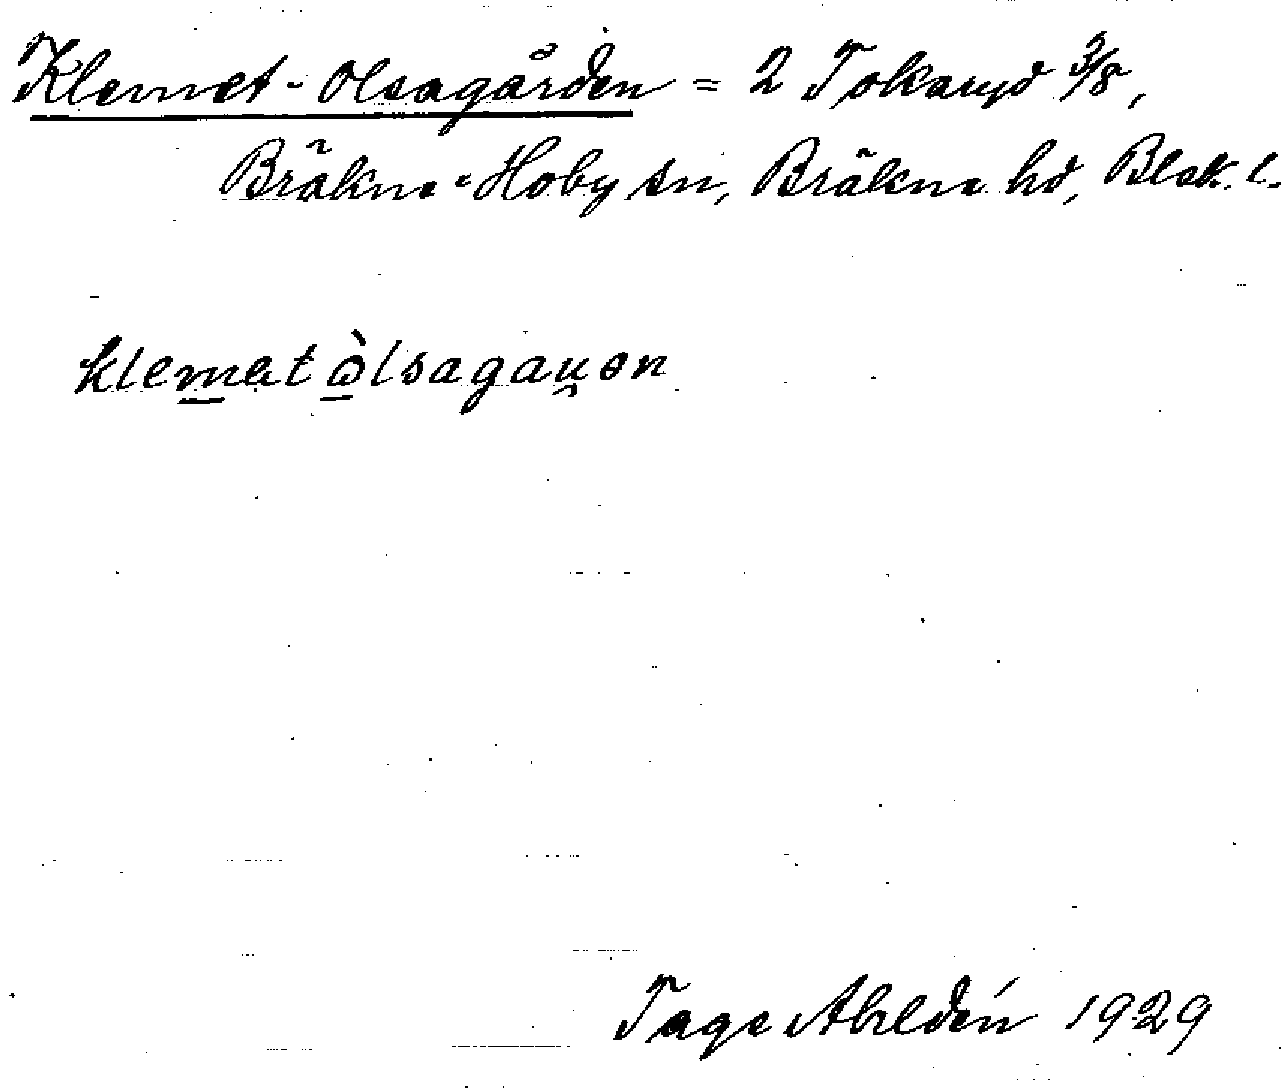 Klemet-Olsagården = 2 Tokaryd 3/8,
Bräkne-Hoby sn, Bräkne hd, Blek. l.
klemat òlsagau̯ən
Tage Ahldén 1929